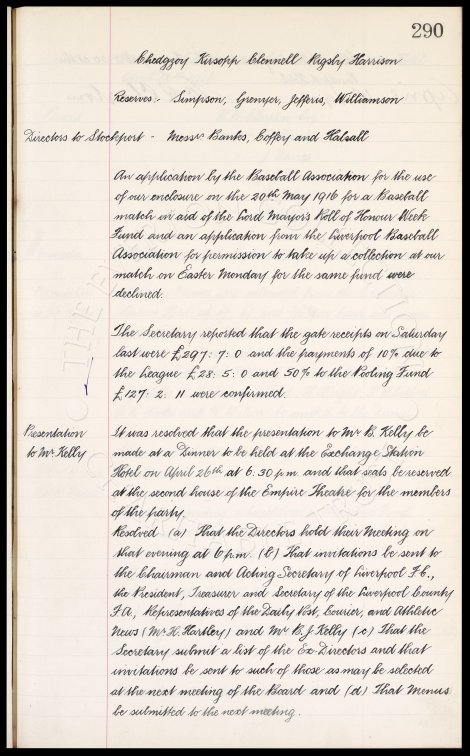 290
Chedgzoy Kirsopp Clennell Rigsby Harrison
Reserves:- Simpson, Grenyer, Jefferis, Williamson
Directors to Stockport - Messrs Banks, Coffey and Halsall
An application by the Baseball Association for the use
of our enclosure on the 20th May 1916 for a Baseball
match in aid of the Lord Mayors Roll of Honour Week
Fund and an application from the Liverpool Baseball
Association for permission to take up a collection at our
match on Easter Monday for the same fund were
declined.
The Secretary reported that the gate receipts on Saturday
last were £297: 7: 0 and the payments of 10% due to
the League £28: 5: 0 and 50% to the Pooling Fund
£127: 2: 11 were confirmed.
Presentation
to Mr Kelly
It was resolved that the presentation to Mr B. Kelly be
made at a Dinner to be held at the Exchange Station
Hotel on April 26th at 6:30 p.m. and that seats be reserved
at the second house of the Empire Theatre for the members
of the party.
Resolved (a) That the Directors hold their Meeting on
that evening at 6 p.m. (b) That invitations be sent to
the Chairman and Acting Secretary of Liverpool F.C.,
the President, Treasurer and Secretary of the Liverpool County
F.A., Representatives of the Daily Post, Courier, and Athletic
News (Mr H. Hartley) and Mr B. J. Kelly (c) That the
Secretary submit a list of the Ex-Directors and that
invitations be sent to such of those as may be selected
at the next meeting of the Board and (d) That Menus
be submitted to the next meeting.